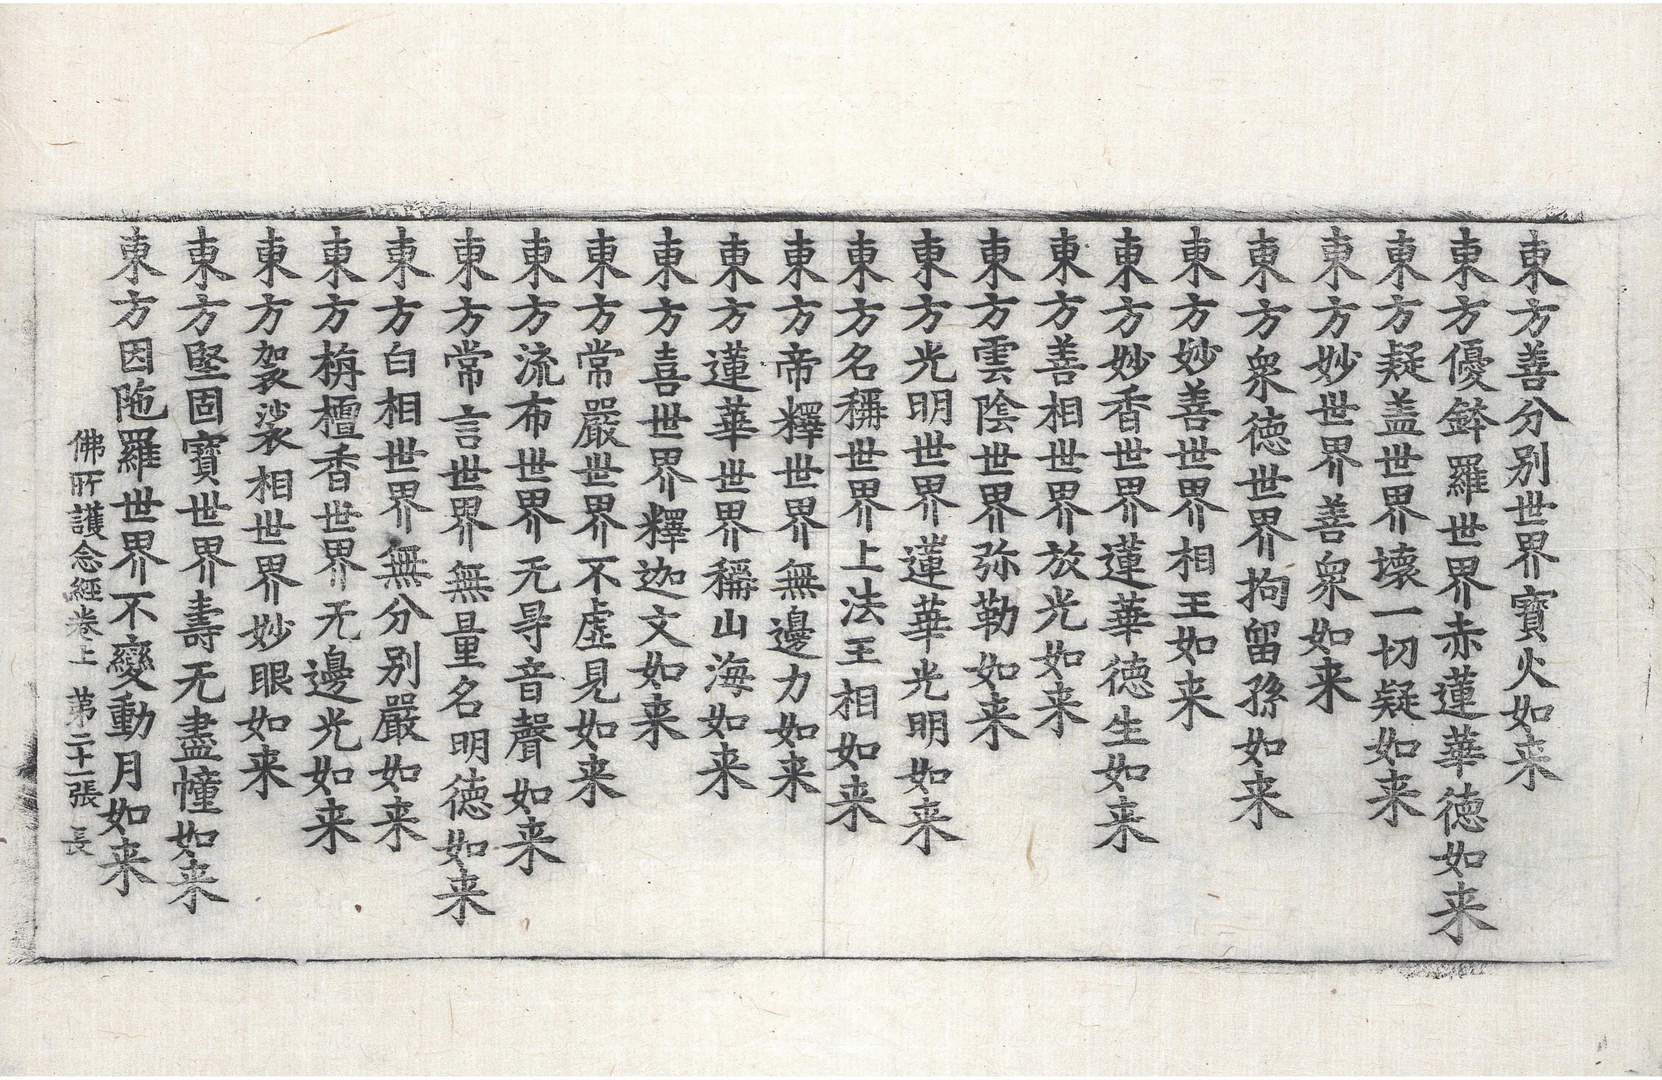 東方善分别世界寶火如来
東方優鉢羅世界赤蓮華徳如来
東方疑盖世界壞一切疑如来
東方妙世界善衆如来
東方衆徳世界拘留孫如来
東方妙善世界相王如来
東方妙香世界蓮華徳生如来
東方善相世界放光如来
東方雲陰世界弥勒如来
東方光明世界蓮華光明如来
東方名稱世界上法王相如来
東方帝釋世界無邊力如来
東方蓮華世界稱山海如来
東方喜世界釋迦文如来
東方常嚴世界不虚見如来
東方流布世界无㝵音聲如来
東方常言世界無量名明徳如来
東方白相世界無分别嚴如来
東方栴檀香世界无邊光如来
東方袈裟相世界妙眼如来
東方堅固寶世界壽无盡幢如来
東方因陁羅世界不變動月如来
佛所護念經卷上 第二十一張 長